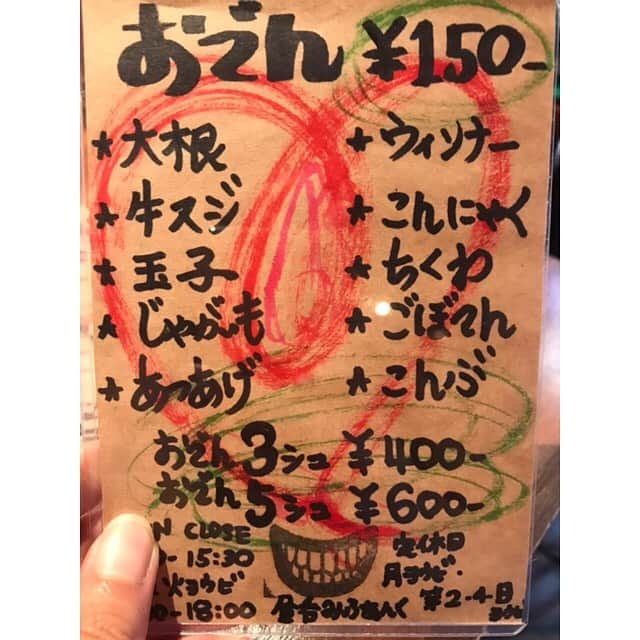 おでん ¥150-
★大根
★牛スジ
★玉子
★じゃがいも
★あつあげ
★ウィンナー
★こんにゃく
★ちくわ
★ごぼてん
★こんぶ
おでん3シュ ¥400-
おでん5シュ ¥600-
N CLOSE
- 15:30
火ヨウビ
0-18:00
定休日
月ヨウビ・
第2-4-日